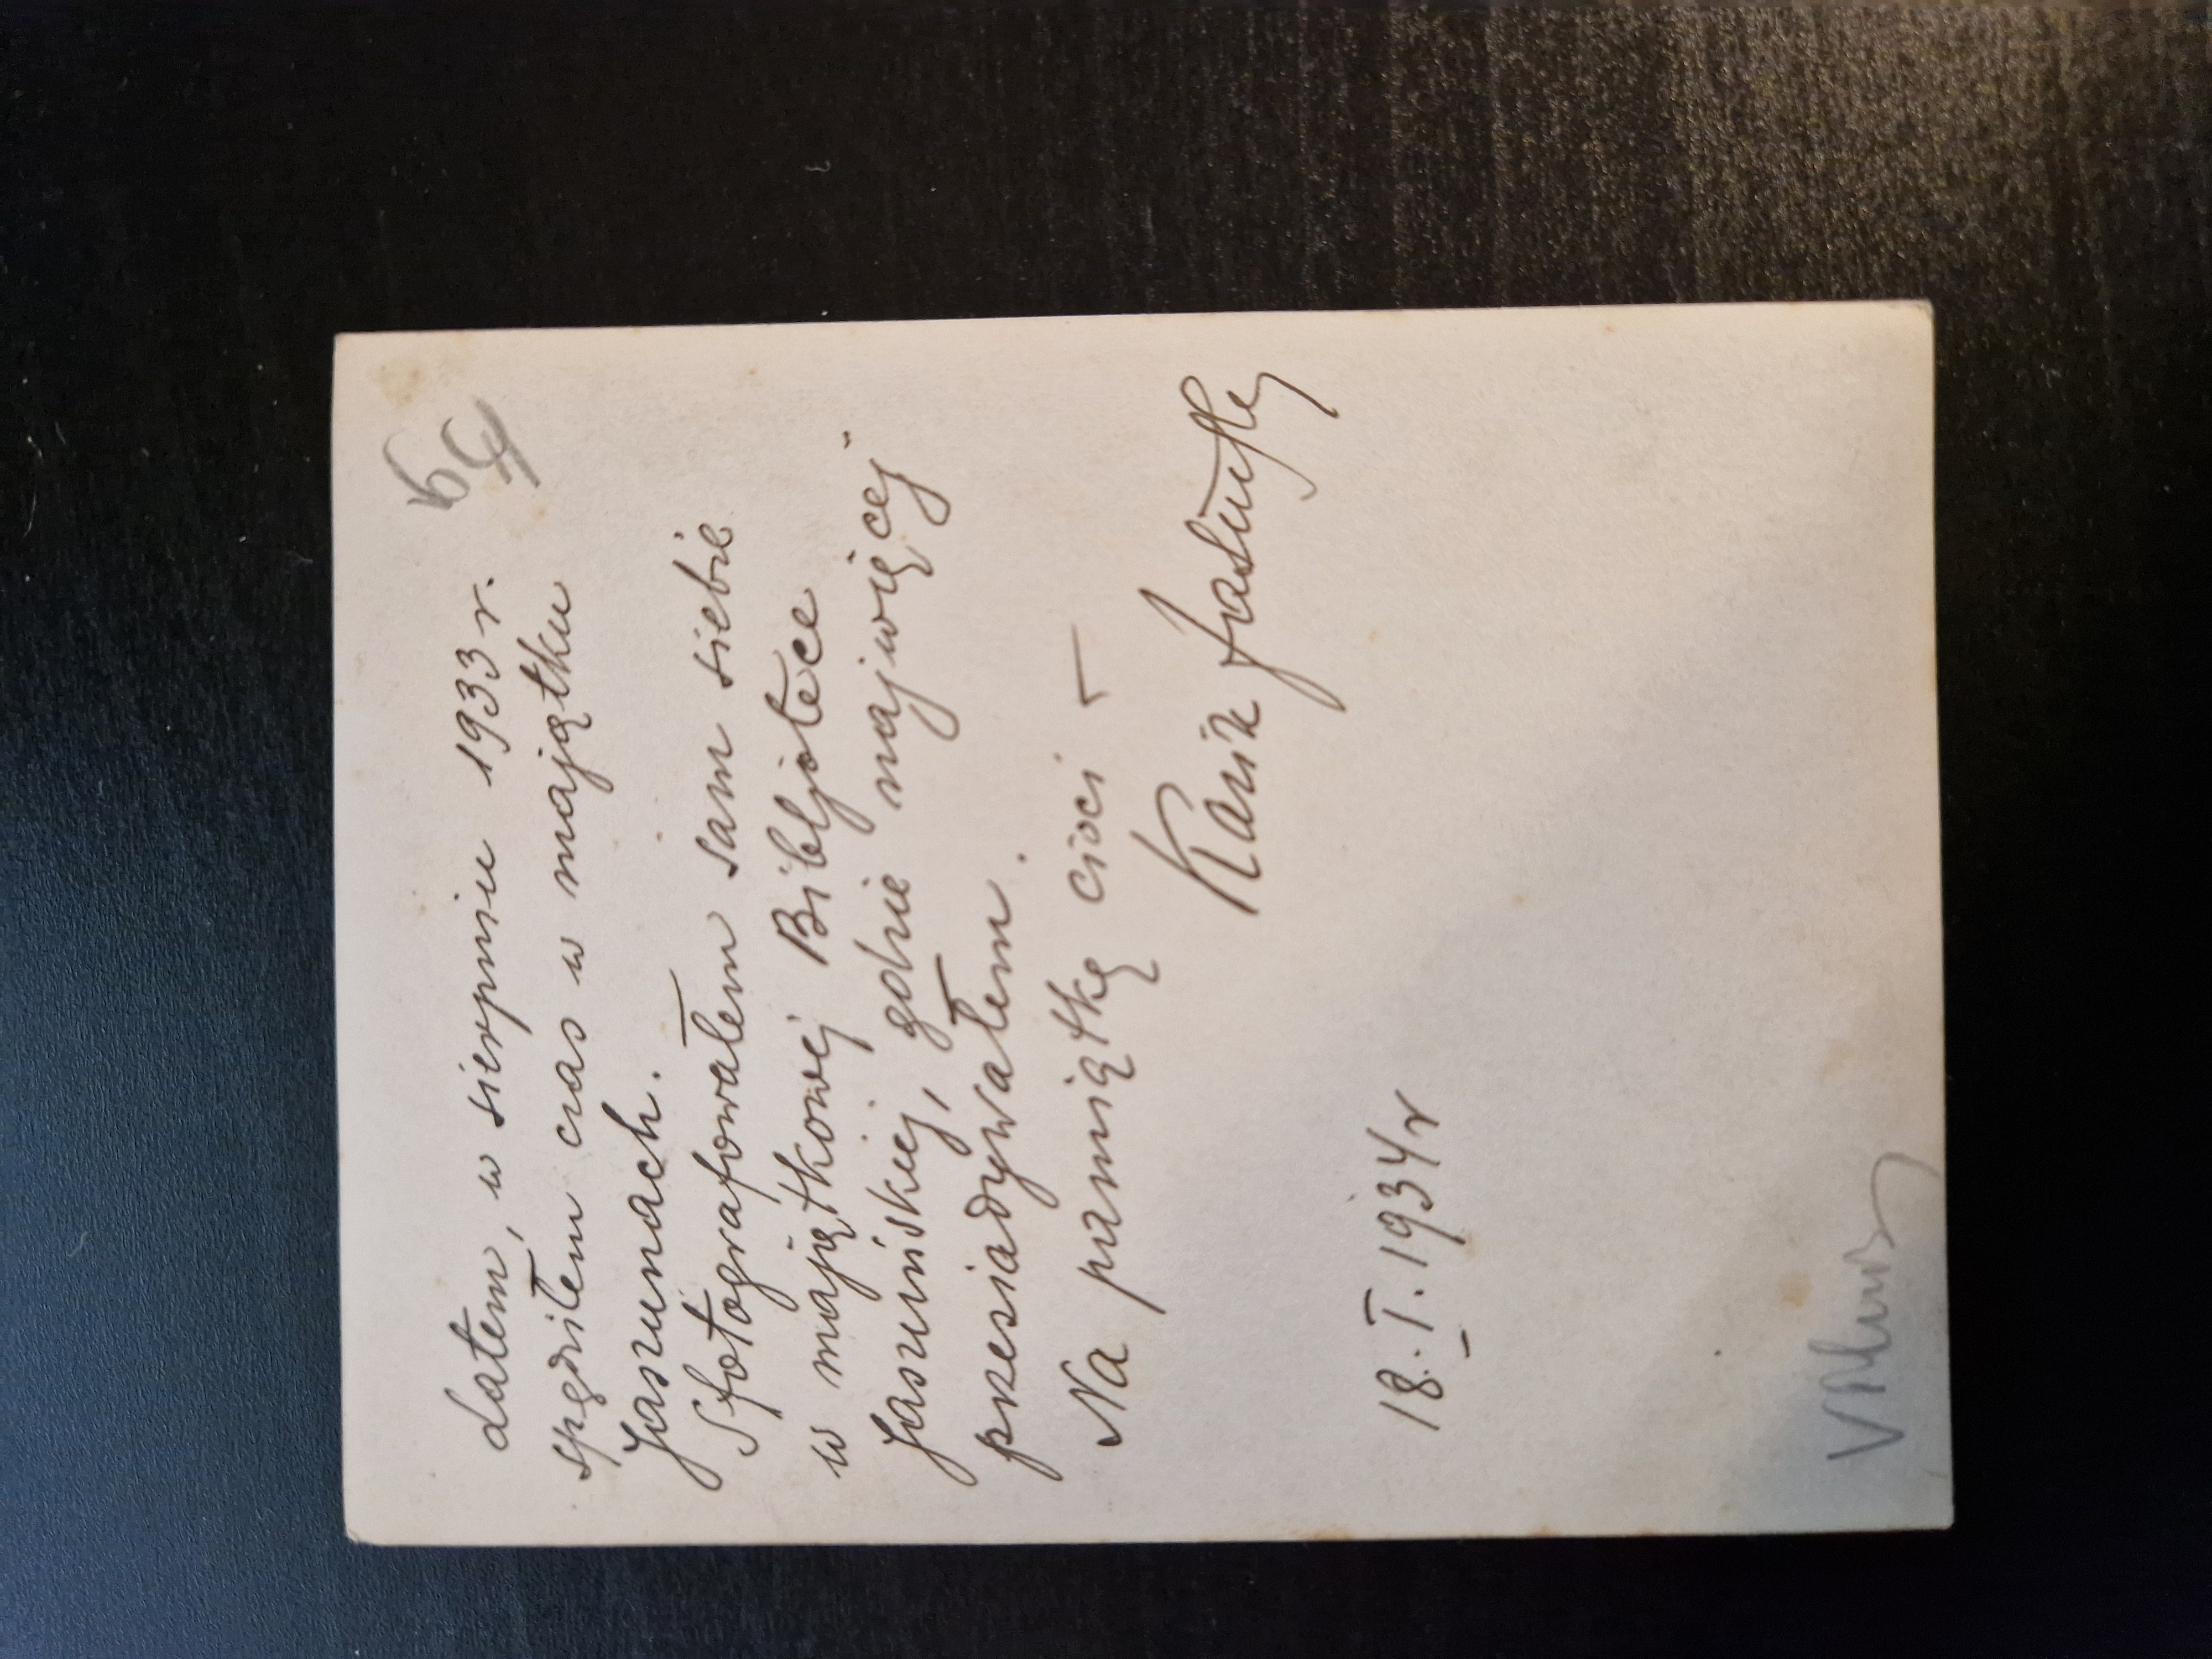 Latem, w sierpniu 1933 r.
spędziłem czas w majątku
Jaszunach.
Sfotografowałem sam siebie
w majątkowej Bibljotece
Jaszuńskiej, gdzie najwięcej
przesiadywałem.
Na pamiątkę cioci –
Kazik
18.I.1934 r